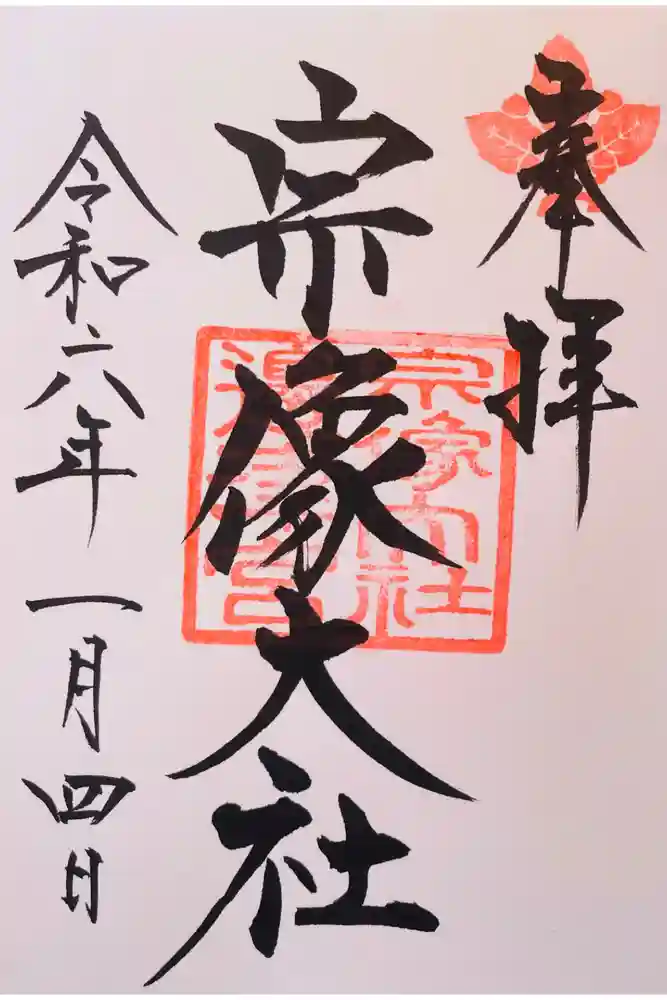 奉拝
宗像大社
令和六年 一月四日
宗像大社